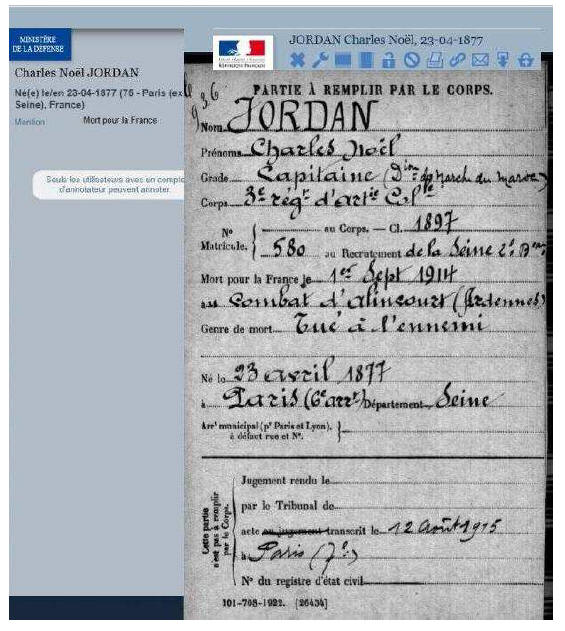 MINISTÈRE
DE LA DÉFENSE
JORDAN Charles Noël, 23-04-1877
Charles Noël JORDAN
Né(e) le/en 23-04-1877 (75 - Paris (ex
Seine), France)
Mention Mort pour la France
Seuls les utilisateurs avec un compte
d'annotateur peuvent annoter
RÉPUBLIQUE FRANÇAISE
936
PARTIE À REMPLIR PAR LE CORPS.
Nom JORDAN
Prénoms Charles Noël
Grade Capitaine (Dion de March du Maroc)
Corps 3e régt d'artie Colle
No au Corps. — Cl. 1897
Matricule. 580 au Recrutement de la Seine 2e Bau
Mort pour la France le 1er Sept 1914
au Combat d'alincourt (Ardennes)
Genre de mort Tué à l'ennemi
Né le 23 avril 1877
à Paris (6e arrt) Département Seine
Arrt municipal (pr Paris et Lyon),
à défaut rue et No.
Cette partie
n'est pas à remplir
par le Corps.
Jugement rendu le
par le Tribunal de
acte ou jugement transcrit le 12 Août 1915
à Paris (7e)
No du registre d'état civil
101-708-1922. [26434]